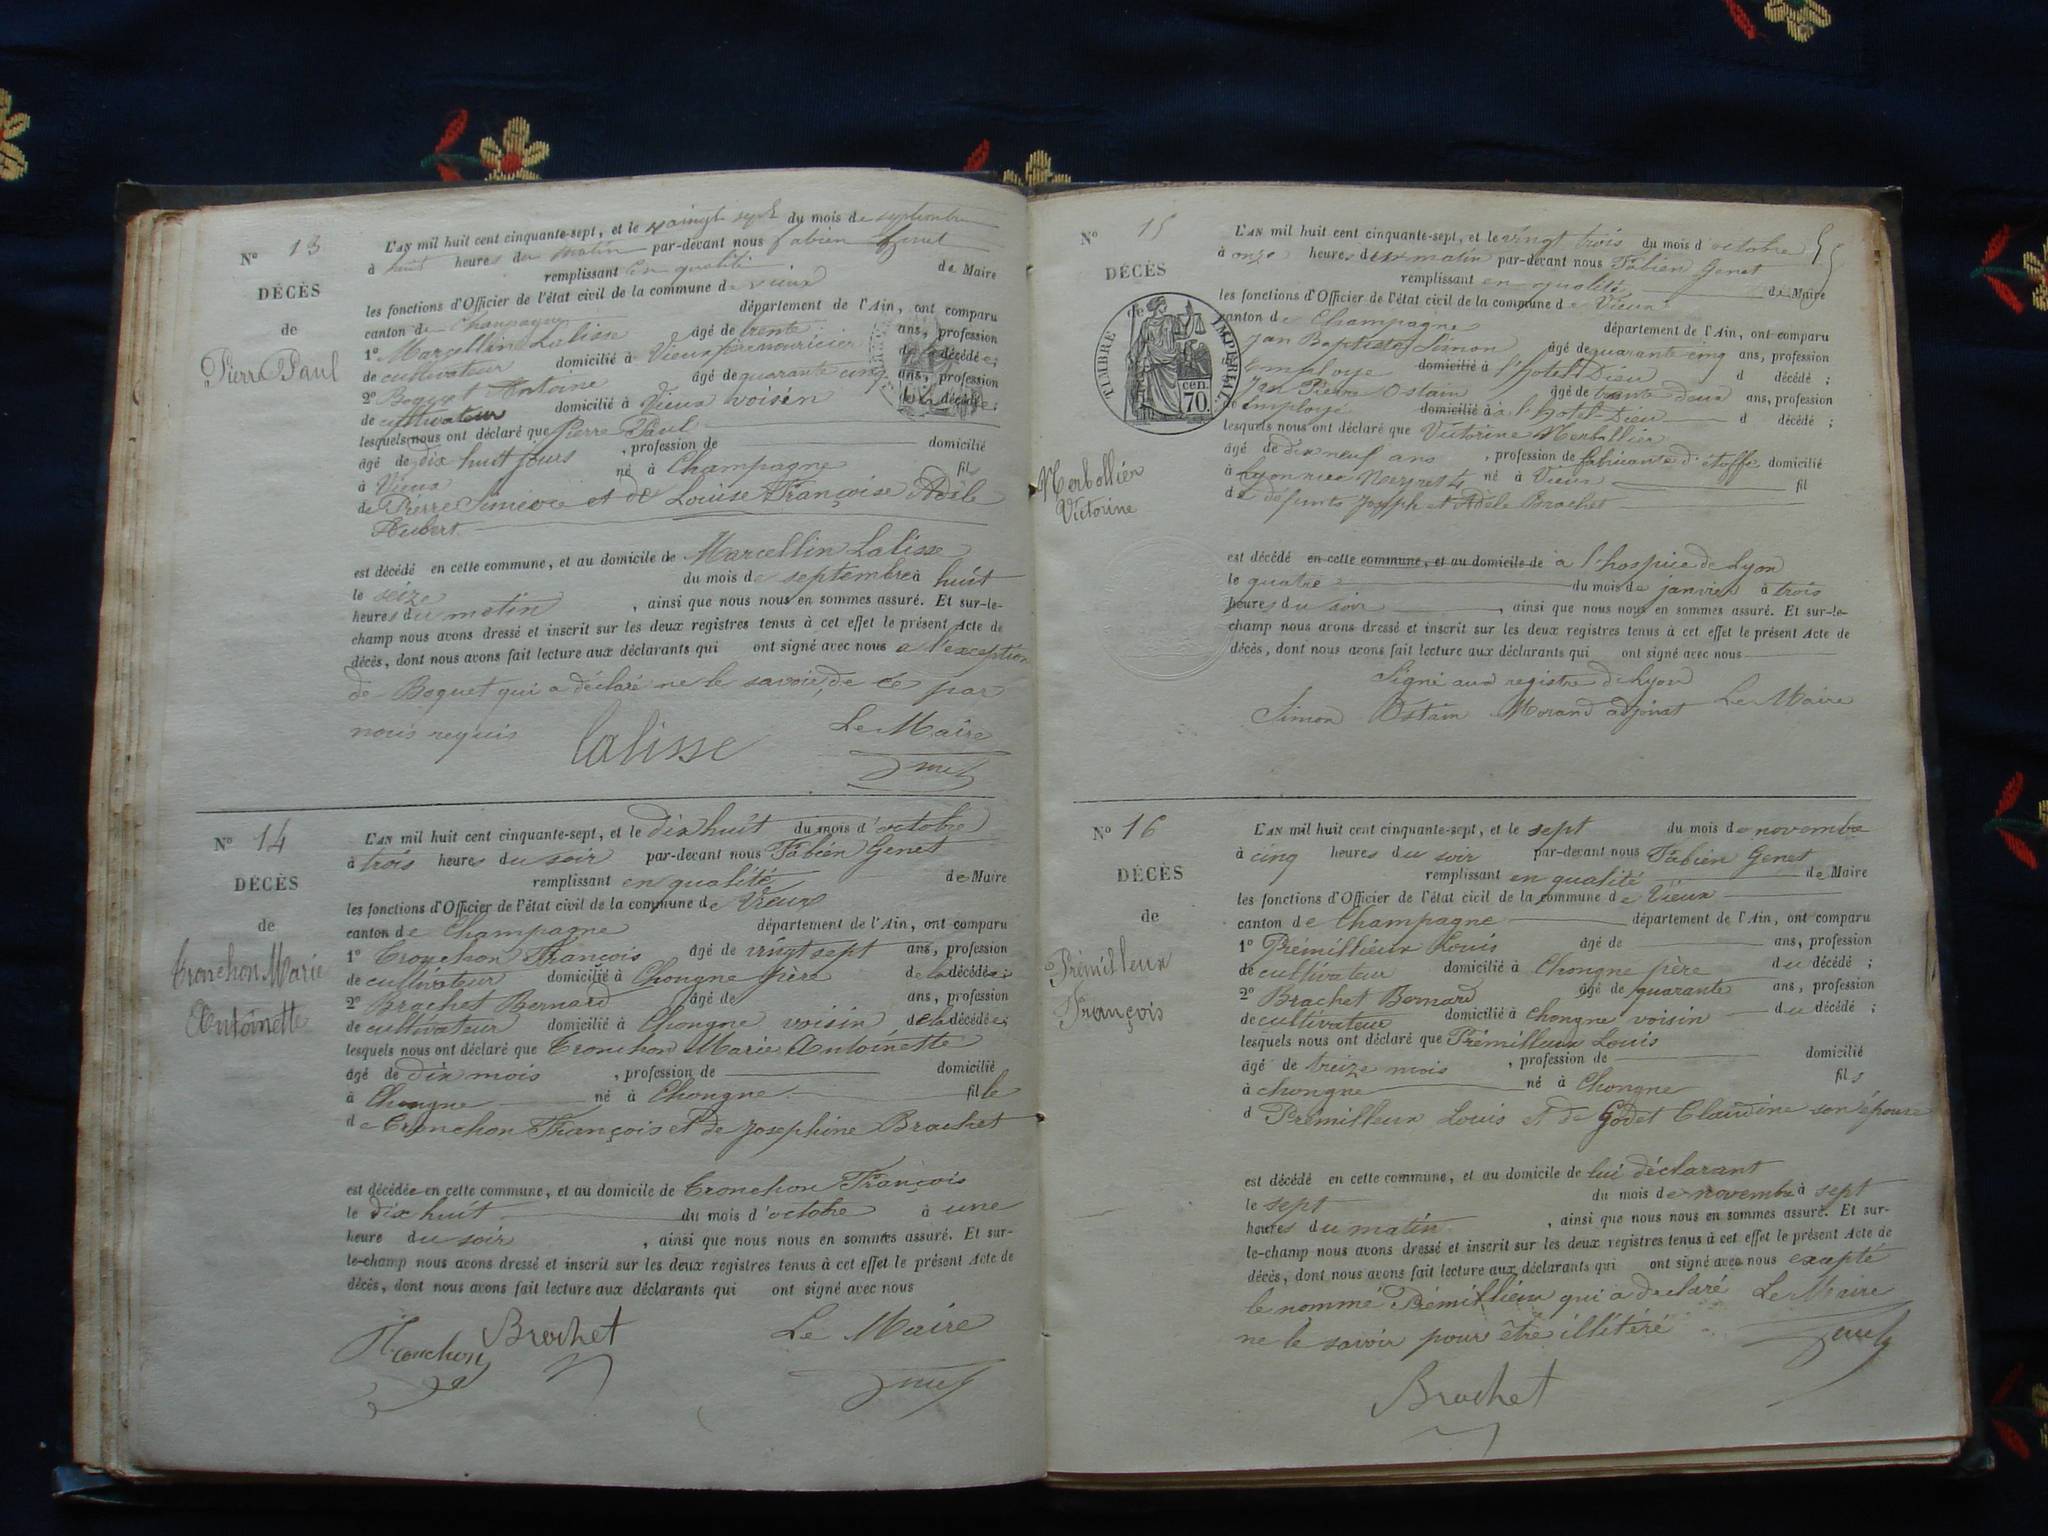 N° 13
DÉCÈS
de
Pierre Paul
L'AN mil huit cent cinquante-sept, et le vaingt sept du mois de septembre
à huit heures du matin par-devant nous fabien Genet
remplissant en qualité de Maire
les fonctions d'Officier de l'état civil de la commune de vieux
canton de Champagne département de l'Ain, ont comparu
1° Marcellin Lalisse âgé de trente ans, profession
de cultivateur domicilié à Vieux père nouricier de décédée;
2° Boquet Antoine âgé de quarante cinq ans, profession
de cultivateur domicilié à Vieux voisin décédée;
lesquels nous ont déclaré que Pierre Paul
âgé de dix huit jours, profession de domicilié
à Vieux né à Champagne fils
de Pierre et de Louise Françoise Adèle
Hubert
est décédé en cette commune, et au domicile de Marcellin Lalisse
le seize du mois de septembre à huit
heures du matin, ainsi que nous nous en sommes assuré. Et sur-le-
champ nous avons dressé et inscrit sur les deux registres tenus à cet effet le présent Acte de
décès, dont nous avons fait lecture aux déclarants qui ont signé avec nous a l'exception
de Boquet qui a déclaré ne le savoir, de ce par
nous requis Lalisse Le Maire
Genet
N° 14
DÉCÈS
de
Tronchon Marie
Antoinette
L'AN mil huit cent cinquante-sept, et le dix huit du mois d'octobre
à trois heures du soir par-devant nous Fabien Genet
remplissant en qualité de Maire
les fonctions d'Officier de l'état civil de la commune de Vieux
canton de Champagne département de l'Ain, ont comparu
1° Tronchon François âgé de vingt sept ans, profession
de cultivateur domicilié à Chongne père de la décédée;
2° Brachet Bernard âgé de ans, profession
de cultivateur domicilié à Chongne voisin de la décédée;
lesquels nous ont déclaré que Tronchon Marie Antoinette
âgé de dix mois, profession de domicilié
à Chongne né à Chongne fille
de Tronchon François et de Josephine Brachet
est décédée en cette commune, et au domicile de Tronchon François
le dix huit du mois d'octobre à une
heure du soir, ainsi que nous nous en sommes assuré. Et sur-
le-champ nous avons dressé et inscrit sur les deux registres tenus à cet effet le présent Acte de
décès, dont nous avons fait lecture aux déclarants qui ont signé avec nous
Tronchon Brochet Le Maire
Genet
N° 15
DÉCÈS
TIMBRE IMPERIAL
cen.
70.
Merbollier
Victorine
L'AN mil huit cent cinquante-sept, et le vingt trois du mois d'octobre
à onze heures du matin par-devant nous Fabien Genet
remplissant en qualité de Maire
les fonctions d'Officier de l'état civil de la commune de Vieux
canton de Champagne département de l'Ain, ont comparu
Jan Baptiste Simon âgé de quarante cinq ans, profession
Employe domicilié à l'hotel Dieu d décédé;
Jan Pierre Ostain âgé de trente deux ans, profession
de Employe domicilié à a l'hotel Dieu d décédé;
lesquels nous ont déclaré que Victorine Merbollier
âgé de dix neuf ans, profession de fabricante d'étoffe domicilié
à Lyon rue né à Vieux fil
de defunts Joseph et Adèle Brochet
est décédé en cette commune, et au domicile de à l'hospice de Lyon
le quatre du mois de janvier à trois
heures du soir, ainsi que nous nous en sommes assuré. Et sur-le-
champ nous avons dressé et inscrit sur les deux registres tenus à cet effet le présent Acte de
décès, dont nous avons fait lecture aux déclarants qui ont signé avec nous
Signé aux registre de Lyon
Simon Ostain Morand adjoint Le Maire
N° 16
DÉCÈS
de
Prémilleux
François
L'AN mil huit cent cinquante-sept, et le sept du mois de novembre
à cinq heures du soir par-devant nous Fabien Genet
remplissant en qualité de Maire
les fonctions d'Officier de l'état civil de la commune de Vieux
canton de Champagne département de l'Ain, ont comparu
1° Prémillieux Louis âgé de ans, profession
de cultivateur domicilié à Chongne père du décédé;
2° Brachet Bernard âgé de quarante ans, profession
de cultivateur domicilié à Chongne voisin du décédé;
lesquels nous ont déclaré que Prémilleux Louis
âgé de treize mois, profession de domicilié
à chongne né à Chongne fils
d Prémilleux Louis et de Godet Claudine son épouse
est décédé en cette commune, et au domicile de lui déclarant
le sept du mois de novembre à sept
heures du matin, ainsi que nous nous en sommes assuré. Et sur-
le-champ nous avons dressé et inscrit sur les deux registres tenus à cet effet le présent Acte de
décès, dont nous avons fait lecture aux déclarants qui ont signé avec nous exapté
le nommé Prémillieux qui a declaré Le Maire
ne le savoir pour être illitéré Genet
Brochet